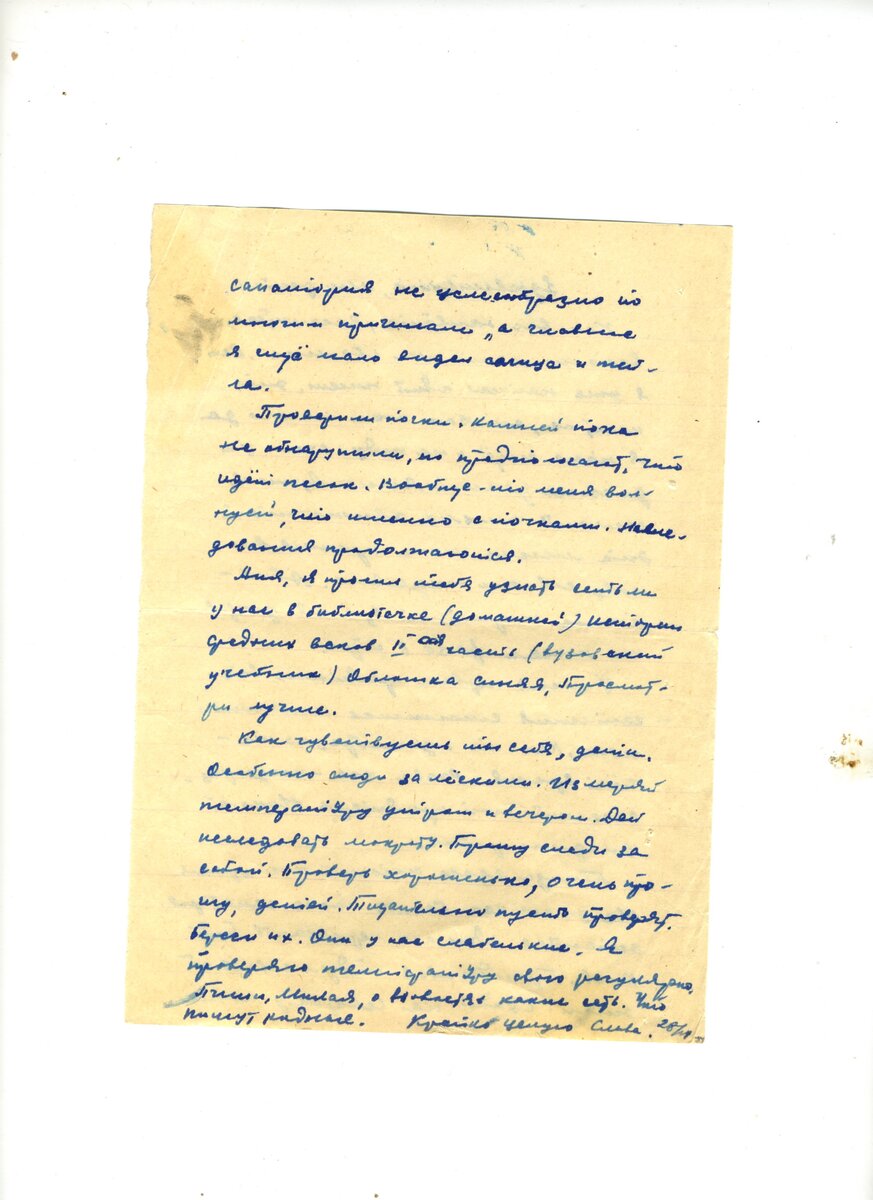 санатория не целесообразно по
многим причинам, а главное
я ещё мало видел солнца и теп-
ла.
Проверили почки. Камней пока
не обнаружили, но предполагают, что
идёт песок. Вообще-то меня вол-
нует, что именно с почками. Иссле-
дования продолжаются.
Аня, я просил тебя узнать есть ли
у нас в библиотечке (домашней) История
средних веков II часть (вузовский
учебник) Обложка синяя, Просмот-
ри лучше.
Как чувствуешь ты себя, дети.
Особенно следи за лёгкими. Измеряй
температуру утром и вечером. Дай
исследовать мокроту. Прошу следи за
собой. Проверь хорошенько, очень про-
шу, детей. Тщательно пусть проверят.
Береги их. Они у нас слабенькие. Я
проверяю температуру свою регулярно.
Пиши, Милая, о новостях какие есть. Что
пишут родные. Крепко целую Слава.